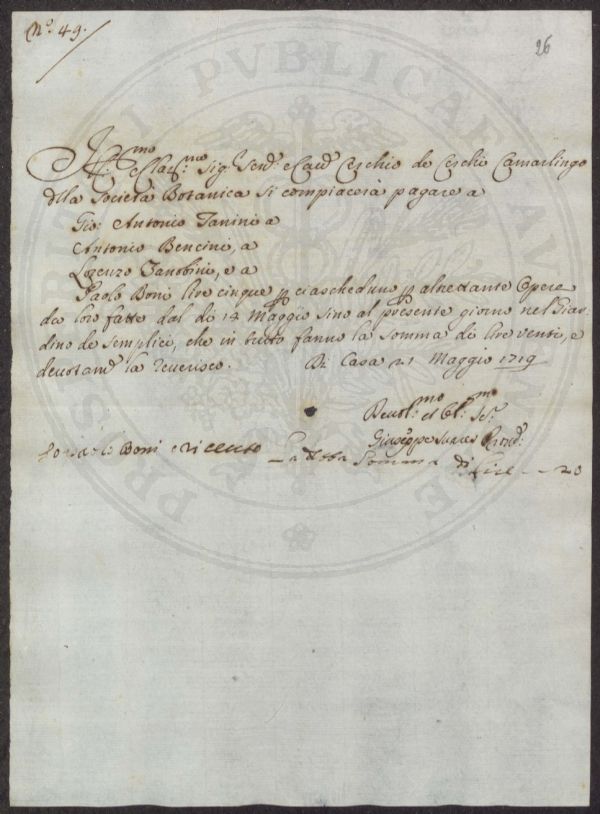 N.º 49.
26
Ill.mo e Clar.mo Sig. Send. e Cau.
della Società Botanica si compiacerà pagare a
Gio: Antonio Tanini a
Antonio Bencini, a
Lorenzo Zanobini, e a
Paolo Boni lire cinque p ciascheduno p altrettante Opere
da loro fatte dal dì Maggio sino al presente giorno nel Giar-
dino de Semplici, che in tutto fanno la somma di lire venti, e
devotam. la reverisco. Di Casa 21 Maggio 1719
Devot.mo et Obl.mo Se.
Giuseppe
Boni ò riceuto La detta Somma di Lire -- 20
PRSBITRI PVBLICAE